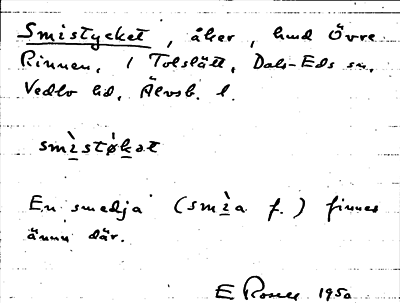 Smistycket, åker, hmd Övre
Rinnen, i Tolslätt, Dals-Eds sn,
Vedbo hd, Älvsb. l.
smìstøkət
En smedja (smìa f.) finnes
ännu där.
E Rosell 1950